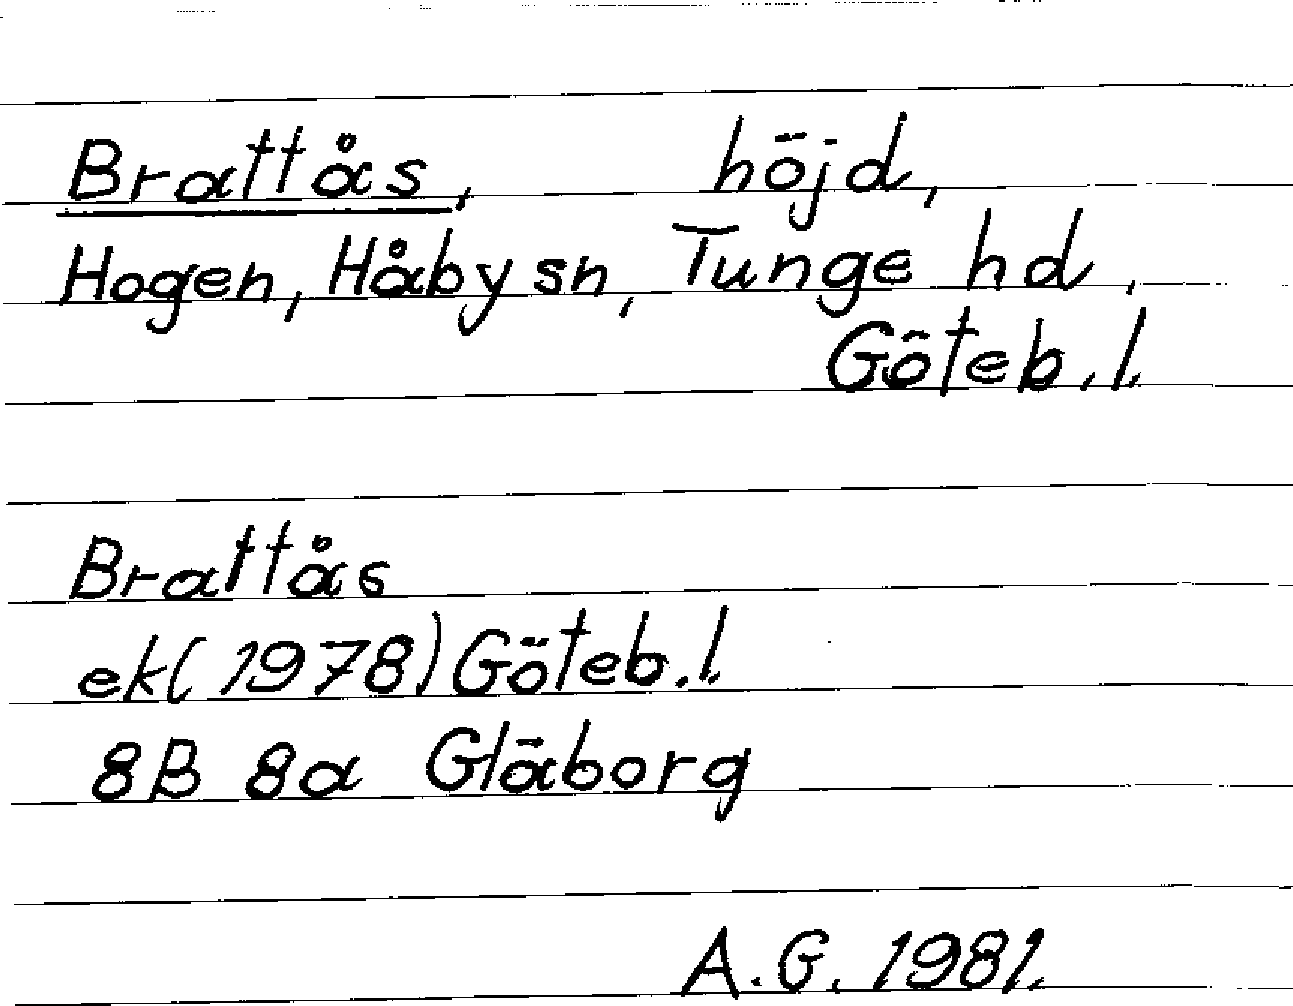 Brattås, höjd,
Hogen, Håby sn, Tunge hd,
Göteb.l.
Brattås
ek(1978)Göteb.l.
8B 8a Gläborg
A.G. 1981.